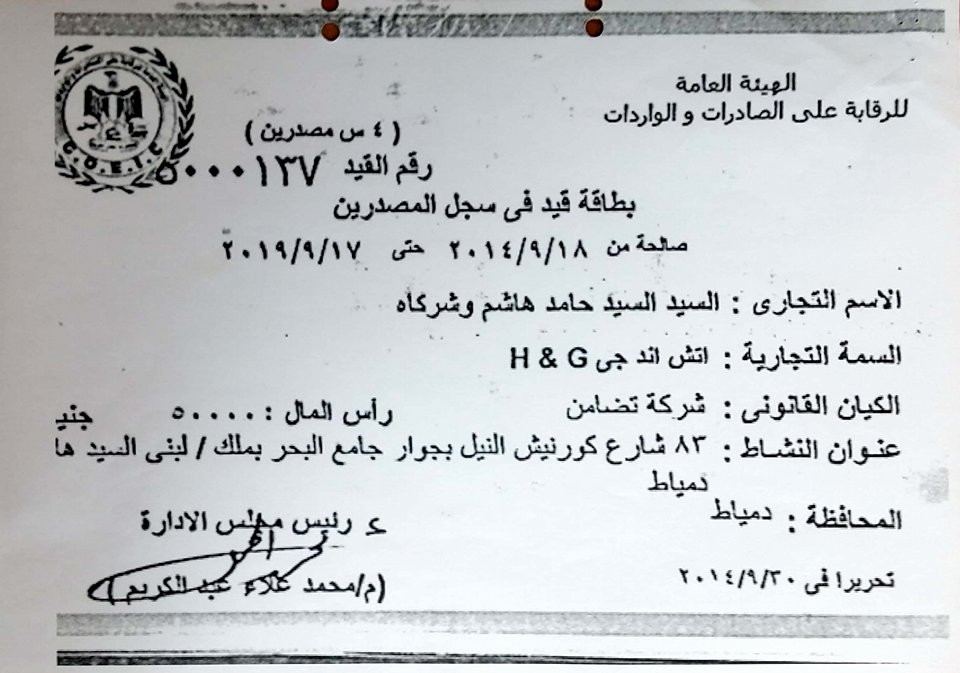 الهيئة العامة
للرقابة على الصادرات و الواردات
G.O.E.I.C
( ٤ س مصدرين )
رقم القيد ٥٠٠٠١٣٧
بطاقة قيد فى سجل المصدرين
صالحة من ٢٠١٤/٩/١٨ حتى ٢٠١٩/٩/١٧
الاسم التجارى : السيد السيد حامد هاشم وشركاه
السمة التجارية : اتش اند جى H & G
الكيان القانونى : شركة تضامن رأس المال : ٥٠٠٠٠ جنيـ
عنوان النشاط : ٨٣ شارع كورنيش النيل بجوار جامع البحر بملك / لبنى السيد ها
دمياط
المحافظة : دمياط
ع رئيس مجلس الادارة
(م/محمد علاء عبد الكريم)
تحريرا فى ٢٠١٤/٩/٣٠